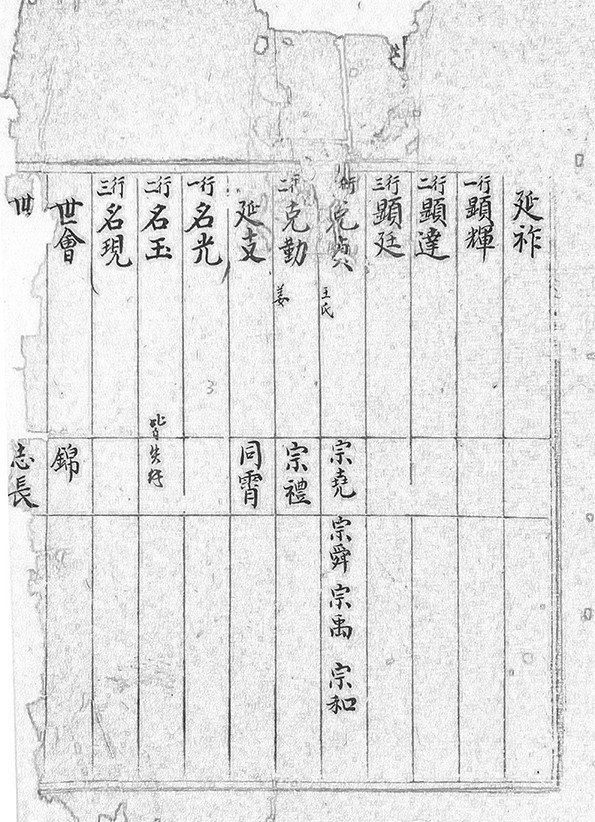 延祚
一行 顯輝
二行 顯達
三行 顯廷
行 克 王氏 宗堯 宗舜 宗禹 宗和
二行 克勤 姜 宗禮
延支 同霄
一行 名光
二行 名玉 皆失
三行 名現
世會 錦
世 志長